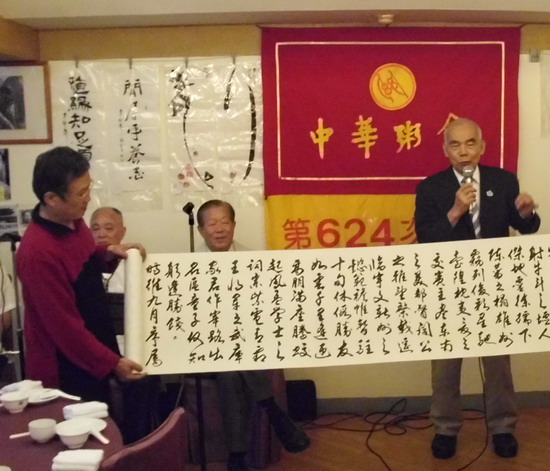 隨緣知足
養志
中華粥会
第624
射牛斗之墟人
傑地靈徐孺下
陳蕃之榻雄州
霧列俊彩星馳
臺隍枕夷夏之
交賓主盡東南
之美都督閻公
之雅望棨戟遙
臨宇文新州之
懿範襜帷暫駐
十旬休假勝友
如雲千里逢迎
高朋滿座騰蛟
起鳳孟學士之
詞宗紫電青霜
王將軍之武庫
家君作宰路出
名區童子何知
躬逢勝餞
時維九月序屬